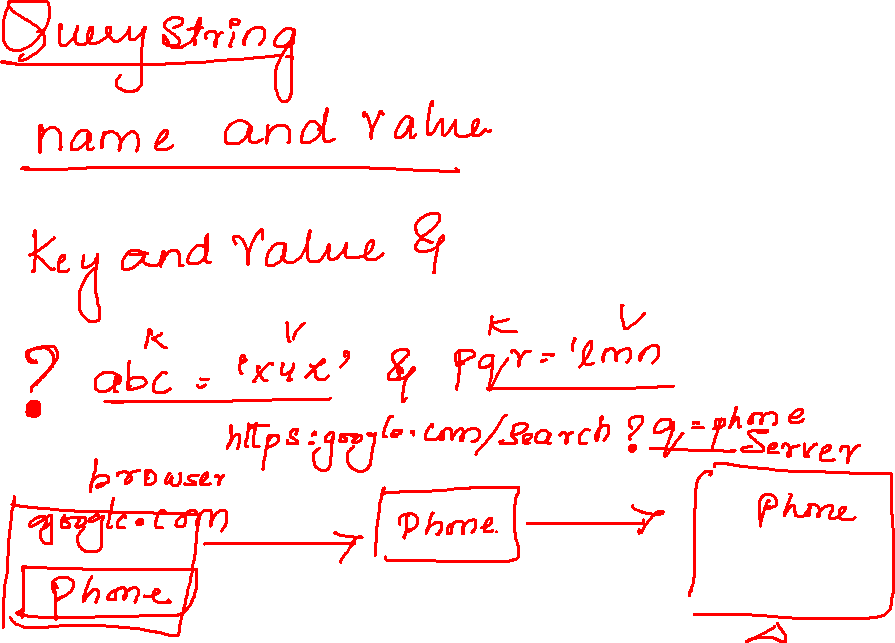 Query String
name and value
Key and Value &
K V K V
? abc = 'xyz' & pqr = 'lmn
https:google.com/search ? q = phone
Server
browser
google.com
Phone
Phone
Phone